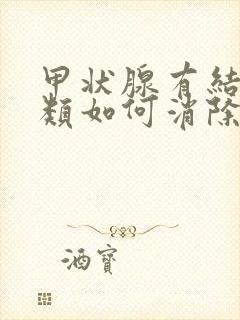 甲状腺有結
類如何消除
酒寶